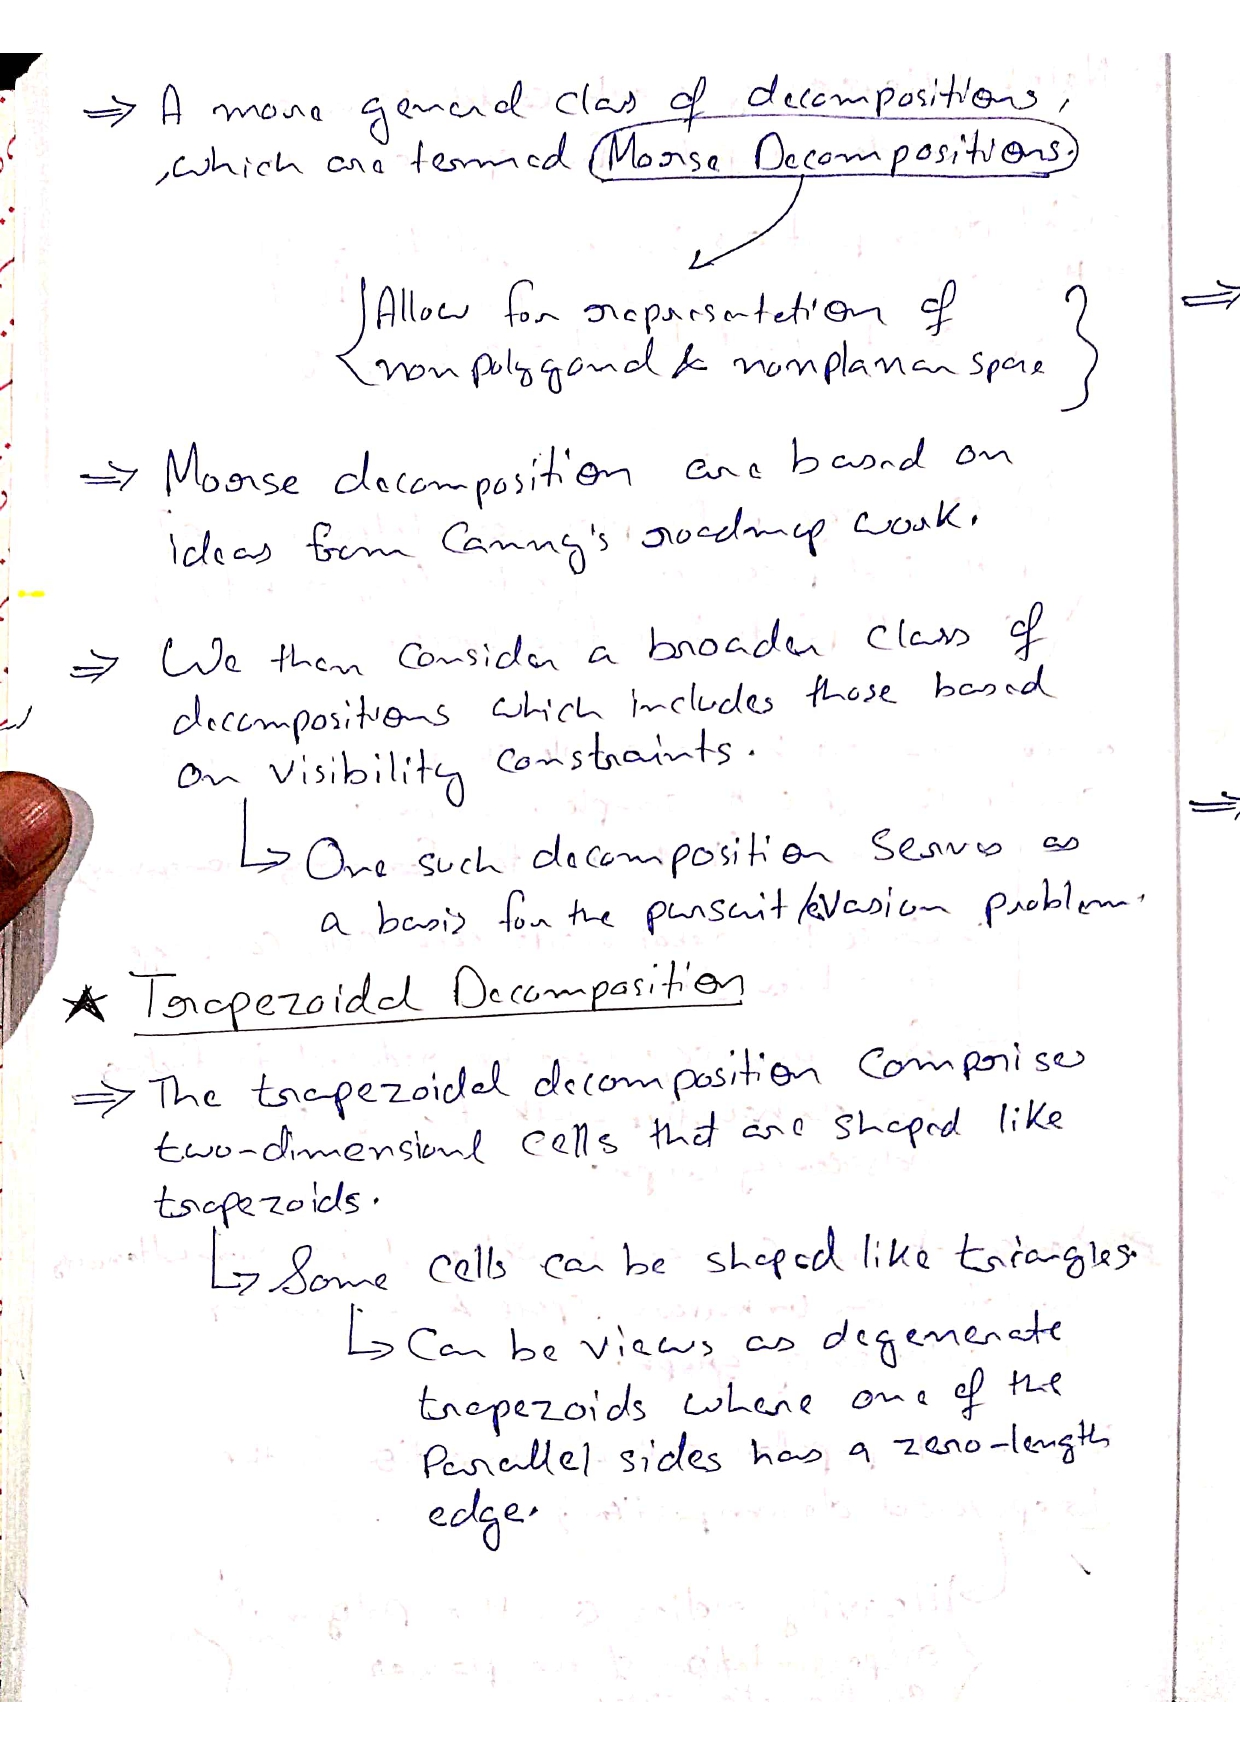 ⇒ A more general class of decompositions,
which are termed Morse Decompositions.
{Allow for representation of
nonpolygonal & nonplanar space}
⇒ Morse decomposition are based on
ideas from Canny's roadmap work.
⇒ We then consider a broader class of
decompositions which includes those based
on visibility constraints.
↳ One such decomposition serves as
a basis for the pursuit/evasion problem.
★ Trapezoidal Decomposition
⇒ The trapezoidal decomposition comprises
two-dimensional cells that are shaped like
trapezoids.
↳ Some cells can be shaped like triangles.
↳ Can be views as degenerate
trapezoids where one of the
Parallel sides has a zero-length
edge.